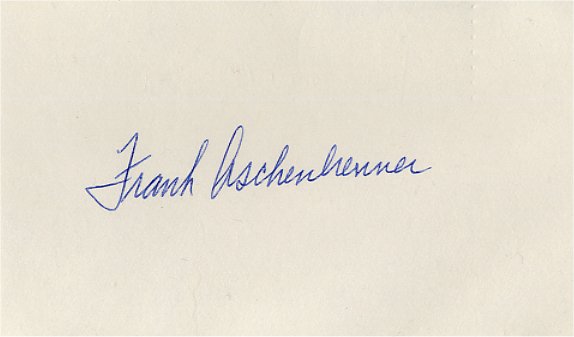 Frank Aschenbrenner